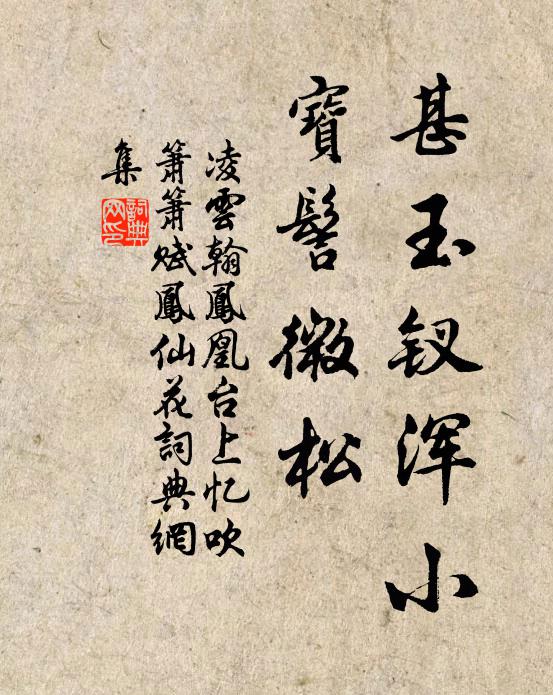 甚玉钗浑小
寶髻微松
凌雲翰鳳凰台上忆吹
簫簫赋鳳仙花詞典網
集
詞典網印